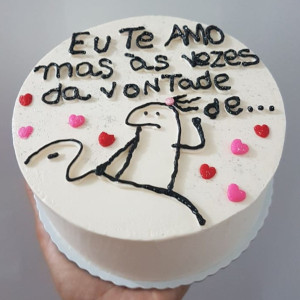 EU TE AMO
mas às vezes
da VONTADE
de...